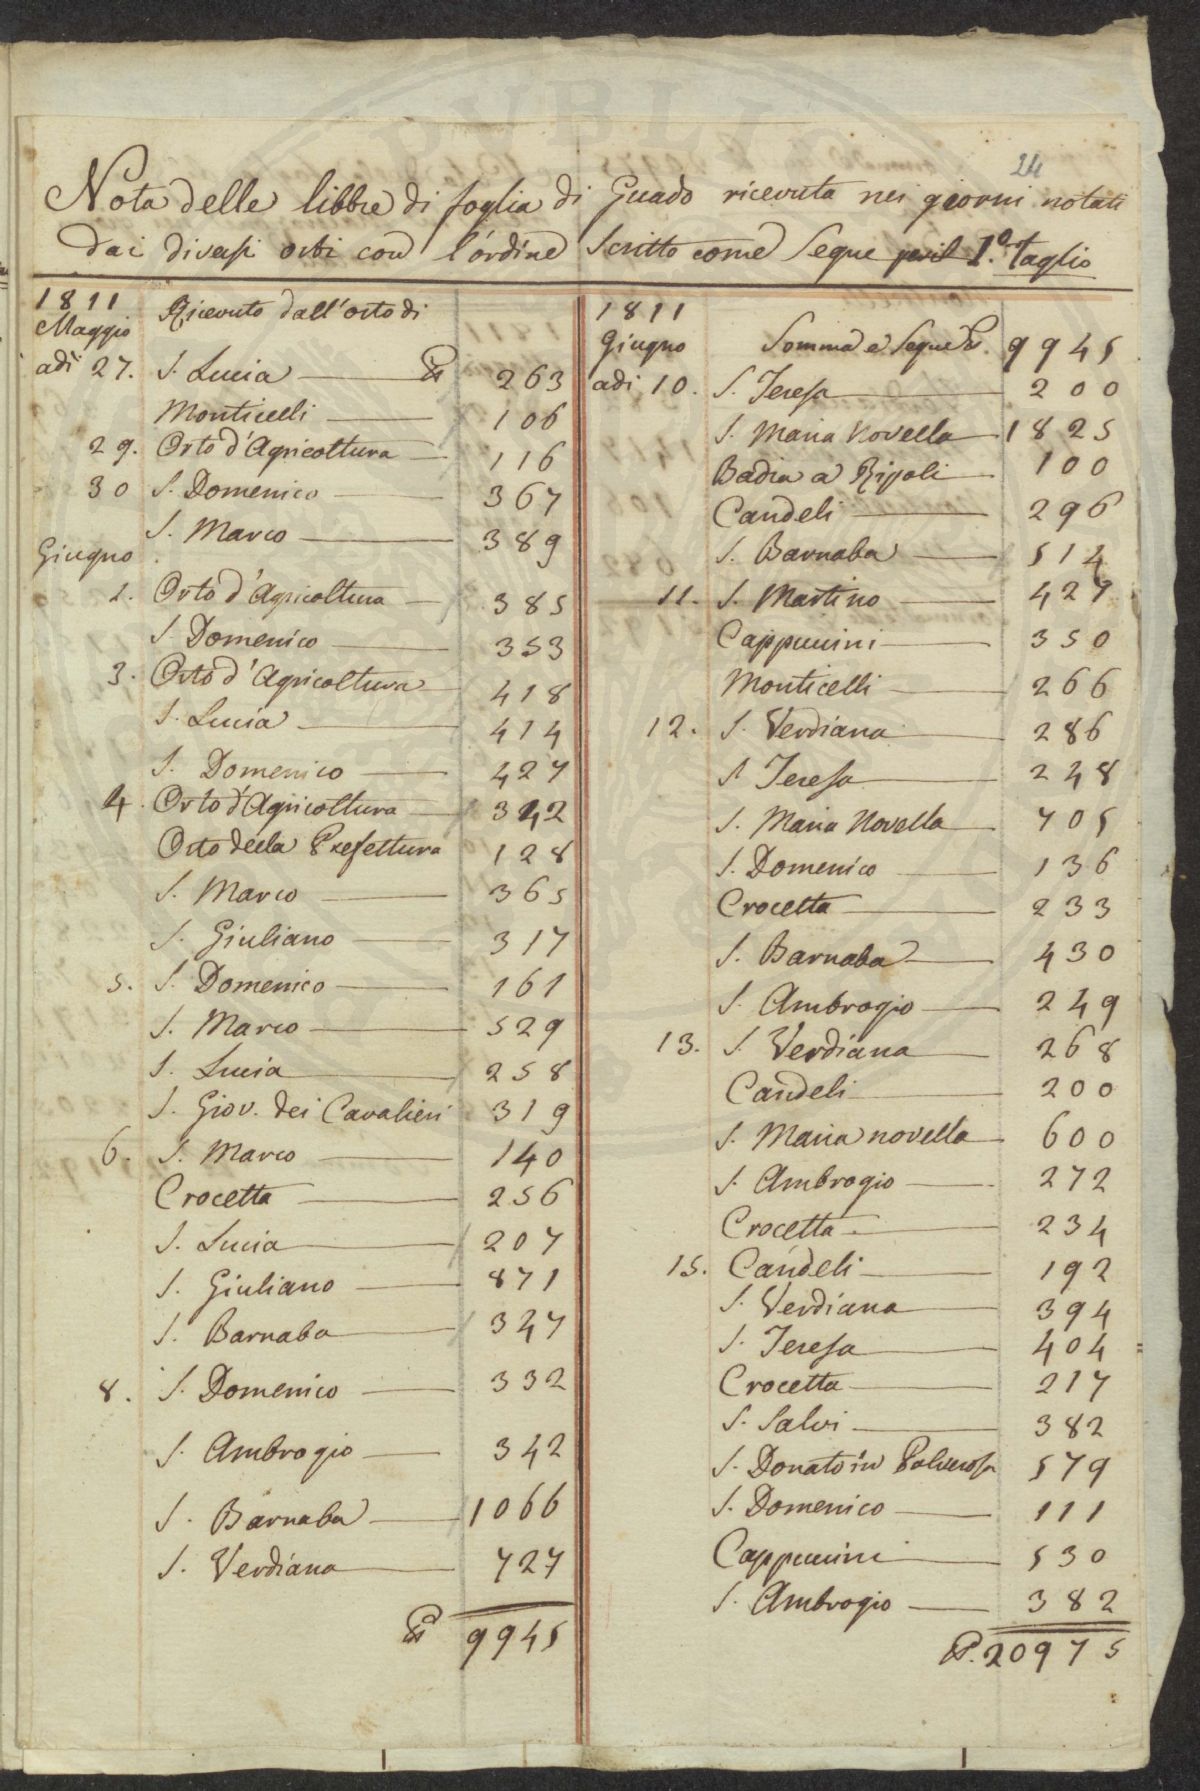 24
Nota delle libbre di foglia di Guado ricevuta nei giorni notati
dai diversi orti con l'ordine scritto come segue per il 1.º Taglio
1811 Ricevuto dall'orto di
Maggio
adì 27. S. Lucia 263
Monticelli 106
29. Orto d'Agricoltura 116
30 S. Domenico 367
S. Marco 389
Giugno
1. Orto d'Agricoltura 385
S. Domenico 353
3. Orto d'Agricoltura 418
S. Lucia 414
S. Domenico 427
4. Orto d'Agricoltura 342
Orto della Prefettura 128
S. Marco 365
S. Giuliano 317
5. S. Domenico 161
S. Marco 529
S. Lucia 258
S. Giov. dei Cavalieri 319
6. S. Marco 140
Crocetta 256
S. Lucia 207
S. Giuliano 871
S. Barnaba 347
8. S. Domenico 332
S. Ambrogio 342
S. Barnaba 1066
S. Verdiana 727
9945
1811
Giugno Somma e Segue 9945
adi 10. S. Teresa 200
S. Maria Novella 1825
Badia a Ripoli 100
Candeli 296
S. Barnaba 514
11. S. Martino 427
Cappuccini 350
Monticelli 266
12. S. Verdiana 286
S Teresa 248
S. Maria Novella 705
S. Domenico 136
Crocetta 233
S. Barnaba 430
S. Ambrogio 249
13. S. Verdiana 268
Candeli 200
S. Maria novella 600
S. Ambrogio 272
Crocetta 234
15. Candeli 192
S. Verdiana 394
S. Teresa 404
Crocetta 217
S. Salvi 382
S. Donato in Polverosa 579
S. Domenico 111
Cappuccini 530
S. Ambrogio 382
20975